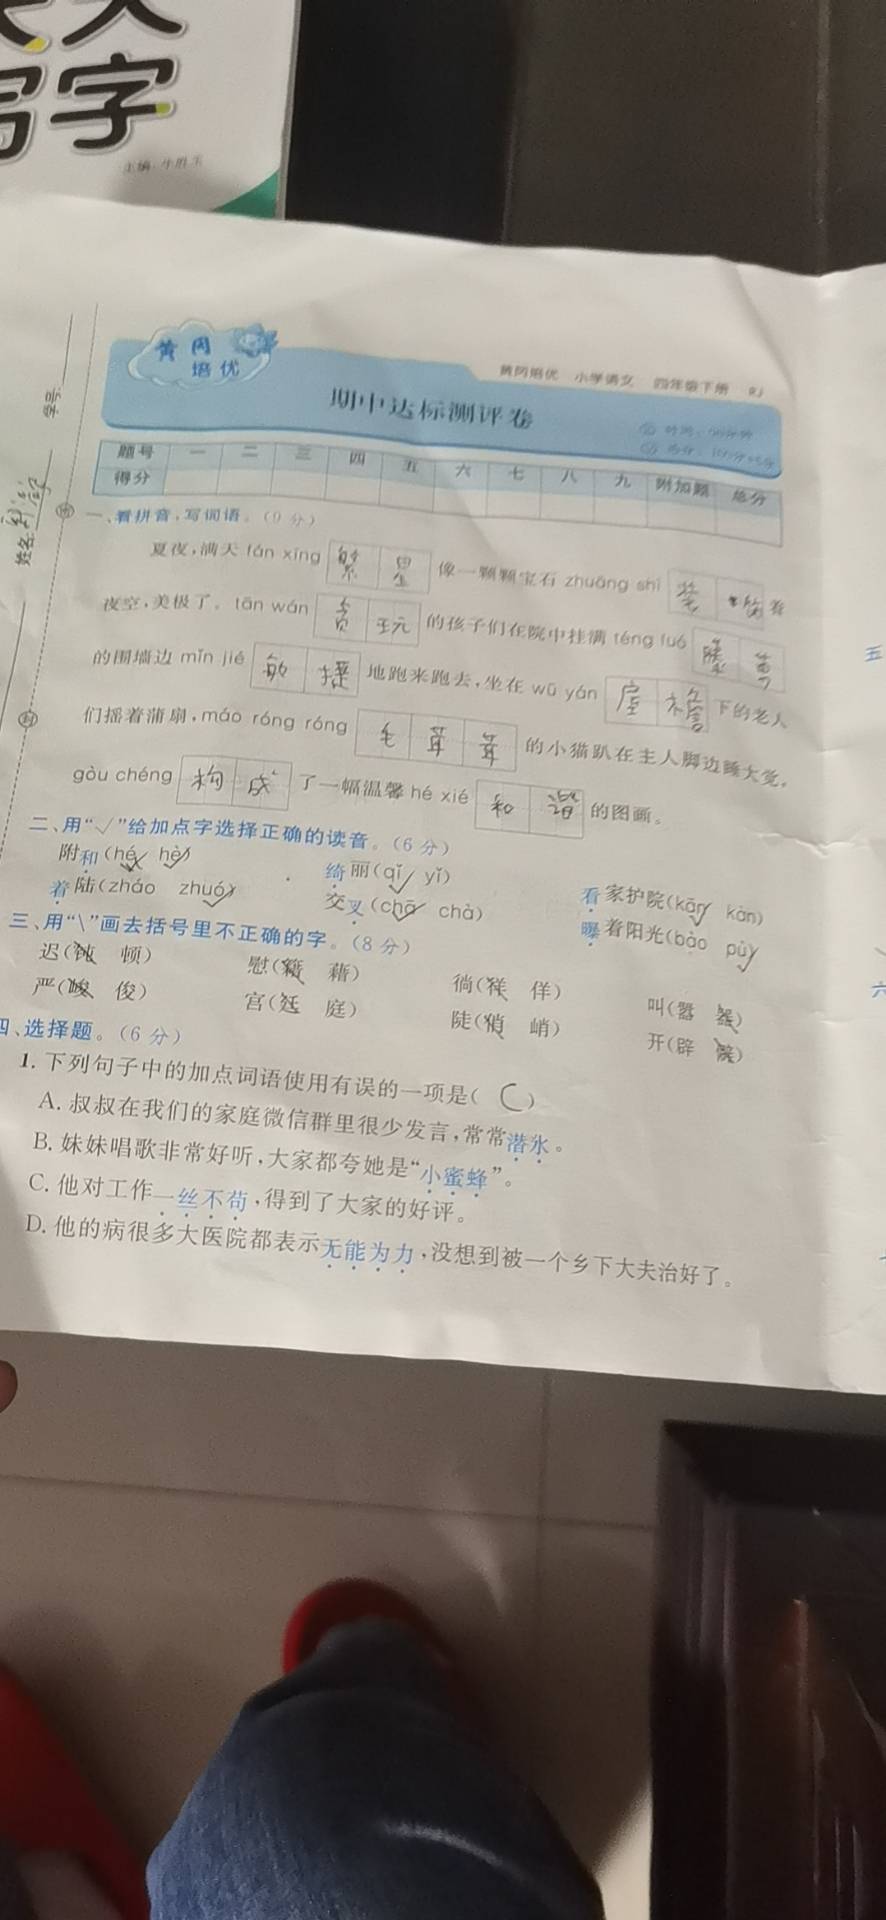 字
主编:牛胜玉
黄冈
培优
黄冈培优 小学语文 四年级下册 RJ
期中达标测评卷
题号 一 二 三 四 五 六 七 八 九 附加题 总分
得分
学号:
姓名:
一、看拼音,写词语。(9 分)
夏夜,满天 fán xīng 繁星 像一颗颗宝石 zhuāng shì 装饰 着
夜空,美极了。tān wán 贪玩 的孩子们在院中挂满 téng luó 藤萝
的围墙边 mǐn jié 敏捷 地跑来跑去,坐在 wū yán 屋檐 下的老人
们摇着蒲扇,máo róng róng 毛茸茸 的小猫趴在主人脚边睡大觉,
gòu chéng 构成 了一幅温馨 hé xié 和谐 的图画。
二、用“√”给加点字选择正确的读音。(6 分)
附和(hé hè) 绮丽(qǐ yǐ) 看家护院(kān kàn)
着陆(zháo zhuó) 交叉(chā chà) 曝着阳光(bào pù)
三、用“\”画去括号里不正确的字。(8 分)
迟(钝 顿) 慰(籍 藉) 徜(徉 佯) 叫(嚣 器)
严(峻 俊) 宫(廷 庭) 陡(俏 峭) 开(辟 僻)
四、选择题。(6 分)
1. 下列句子中的加点词语使用有误的一项是( C )
A. 叔叔在我们的家庭微信群里很少发言,常常潜水。
B. 妹妹唱歌非常好听,大家都夸她是“小蜜蜂”。
C. 他对工作一丝不苟,得到了大家的好评。
D. 他的病很多大医院都表示无能为力,没想到被一个乡下大夫治好了。
五
六